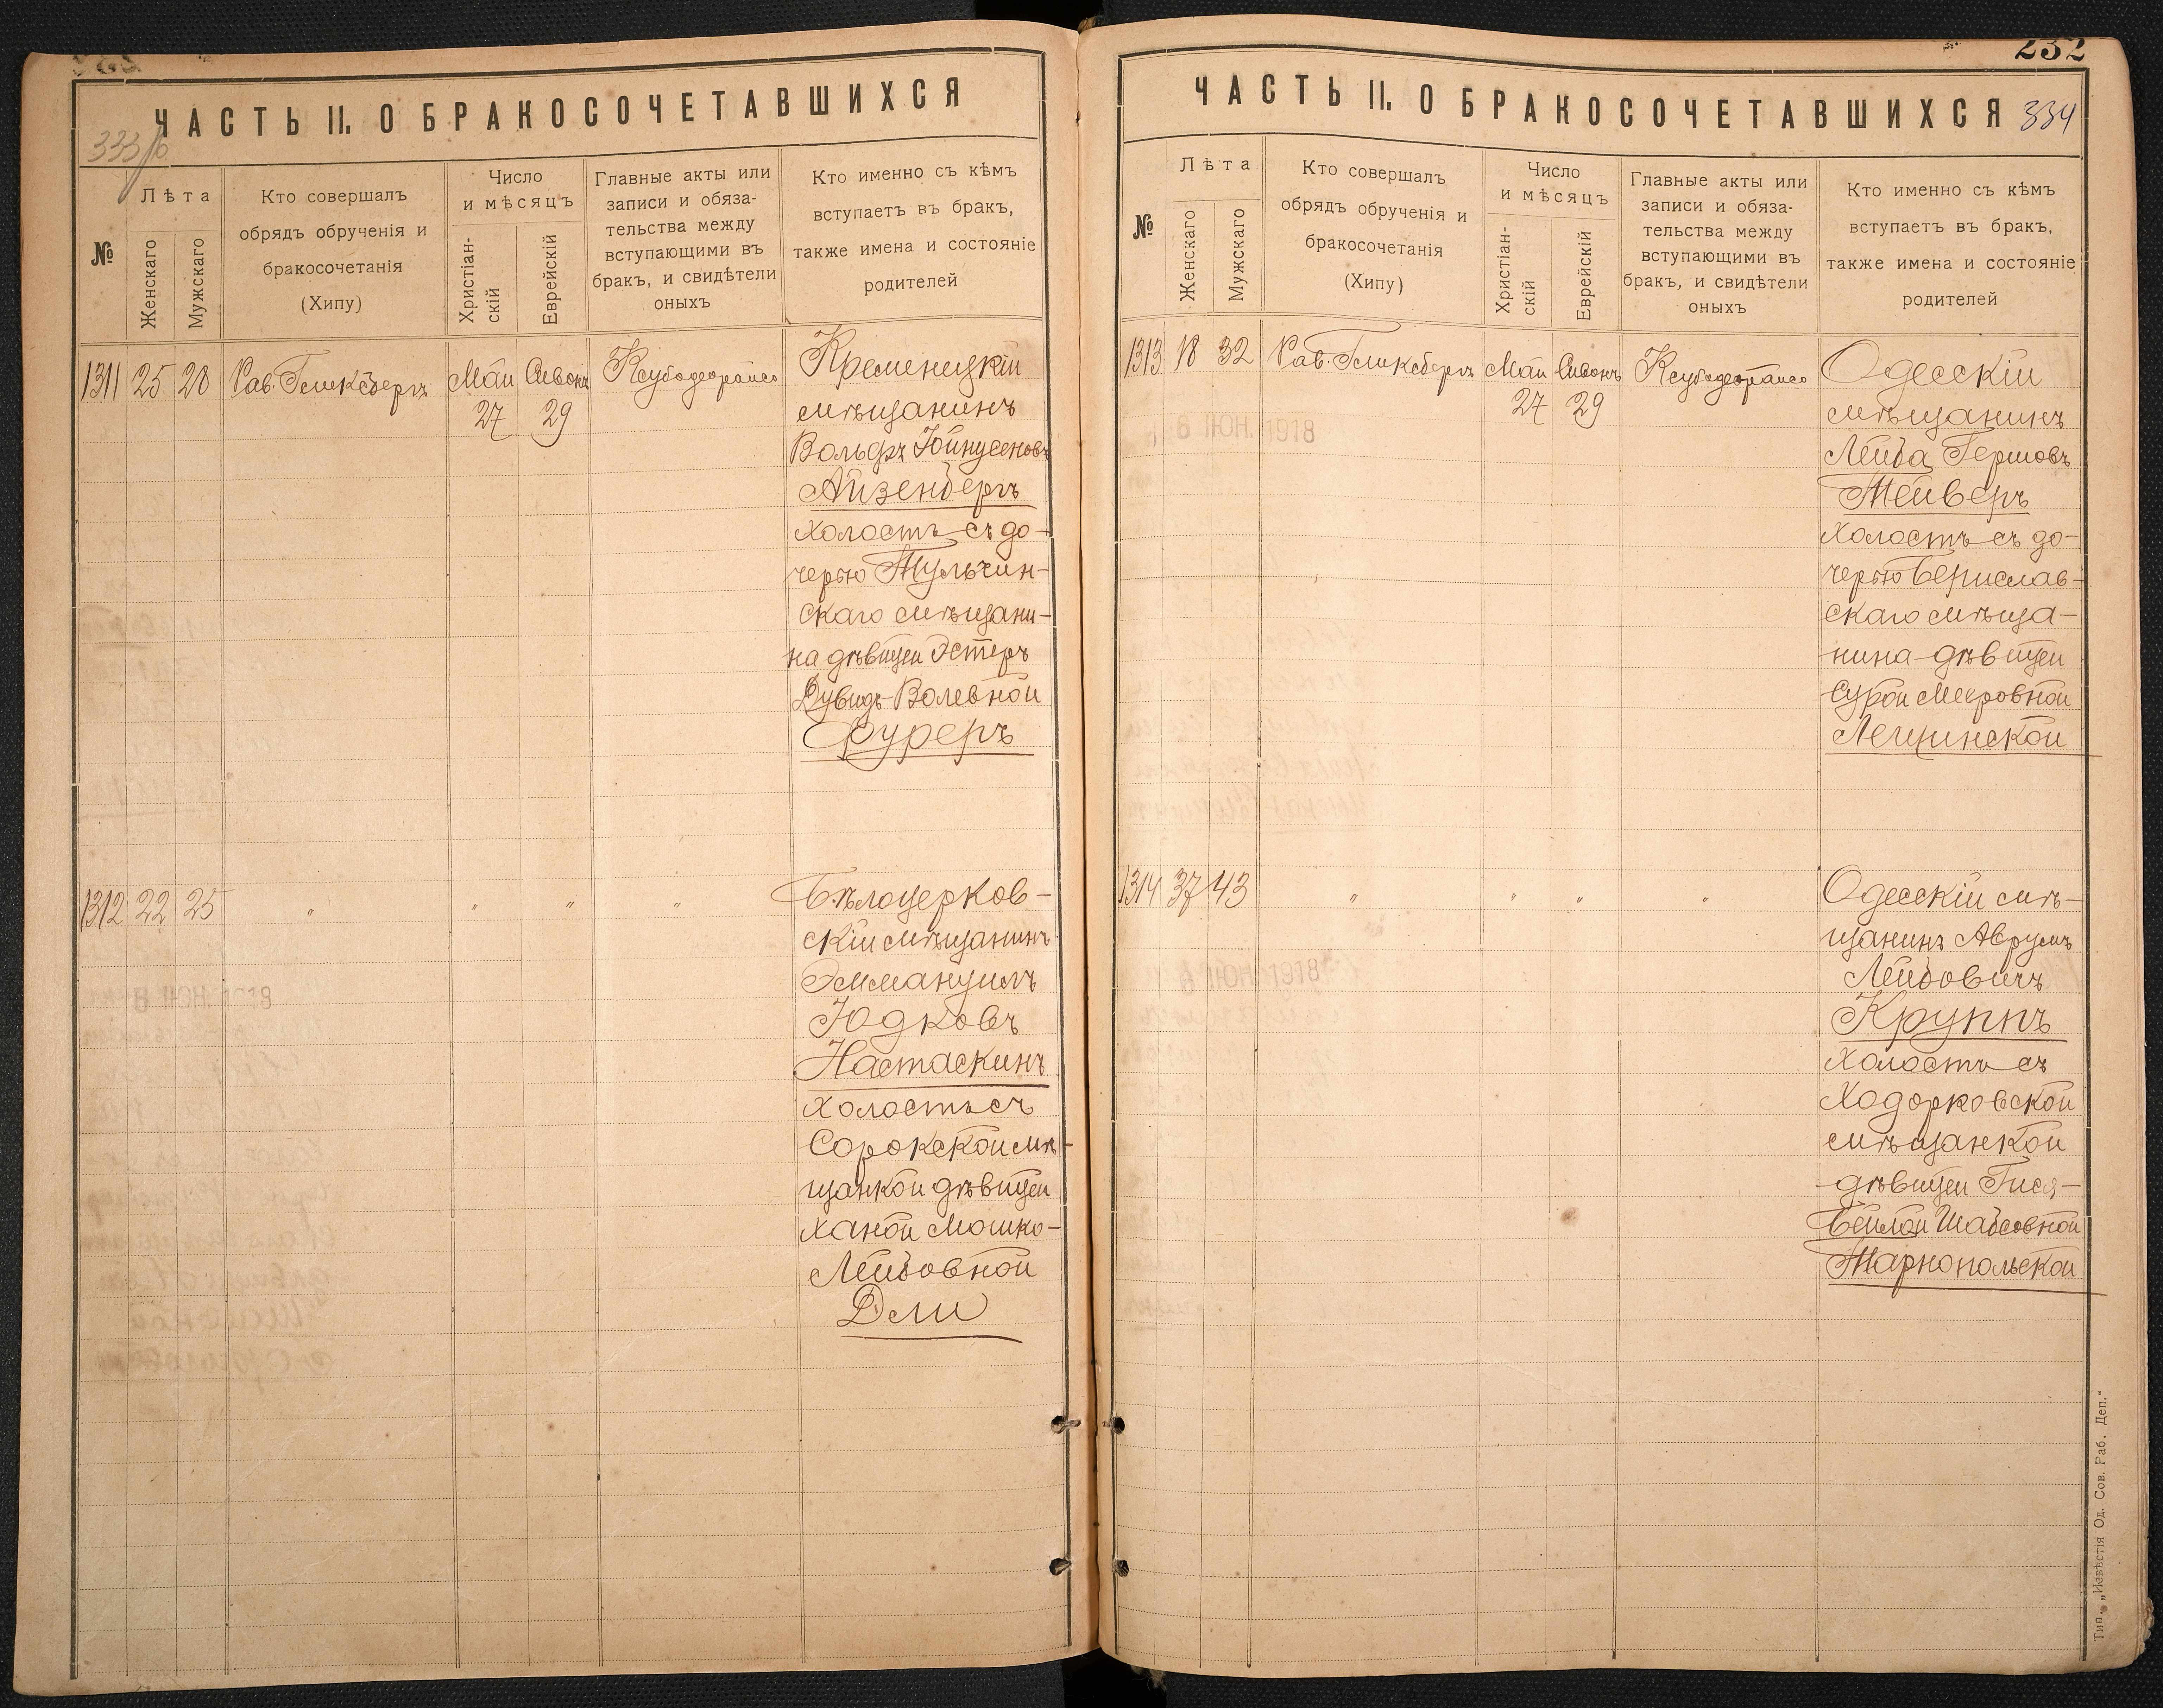 ЧАСТЬ II. О БРАКОСОЧЕТАВШИХСЯ
333/б
№
Лѣта
Женскаго
Мужскаго
Кто совершалъ
обрядъ обрученія и
бракосочетанія
(Хипу)
Число
и мѣсяцъ
Христіан-
скій
Еврейскій
Главные акты или
записи и обяза-
тельства между
вступающими въ
бракъ, и свидѣтели
оныхъ
Кто именно съ кѣмъ
вступаетъ въ бракъ,
также имена и состояніе
родителей
1311 25 28 Рав. Гликсбергъ Май Сивонъ
27 29
Ксубодеорайсо
Кременецкій
мѣщанинъ
Вольфъ Йойнусеновъ
Айзенбергъ
холостъ съ до-
черью Тульчин-
скаго мѣщани-
на дѣвицей Эстеръ
Дувидъ-Волевной
Фуреръ
1312 22 25 " " " "
Бѣлоцерков-
скій мѣщанинъ
Эммануилъ
Юдковъ
Настаскинъ
холостъ съ
Сорокской мѣ-
щанкой дѣвицей
Ханой Мошко-
Лейбовной
Дли
ЧАСТЬ II. О БРАКОСОЧЕТАВШИХСЯ
232
334
№
Лѣта
Женскаго
Мужскаго
Кто совершалъ
обрядъ обрученія и
бракосочетанія
(Хипу)
Число
и мѣсяцъ
Христіан-
скій
Еврейскій
Главные акты или
записи и обяза-
тельства между
вступающими въ
бракъ, и свидѣтели
оныхъ
Кто именно съ кѣмъ
вступаетъ въ бракъ,
также имена и состояніе
родителей
1313 18 32 Рав. Гликсбергъ Май Сивонъ
27 29
Ксубодеорайсо
6 ІЮН. 1918
Одесскій
мѣщанинъ
Лейба Гершовъ
Тейверъ
холостъ съ до-
черью Берислав-
скаго мѣща-
нина дѣвицей
Сурой Мееровной
Лещинской
1314 37 43 " " " "
Одесскій мѣ-
щанинъ Аврумъ
Лейбовичъ
Круппъ
холостъ съ
Ходорковской
мѣщанкой
дѣвицей Гися-
Бейлой Шабсовной
Тарнопольской
Тип. „Извѣстія Од. Сов. Раб. Деп."